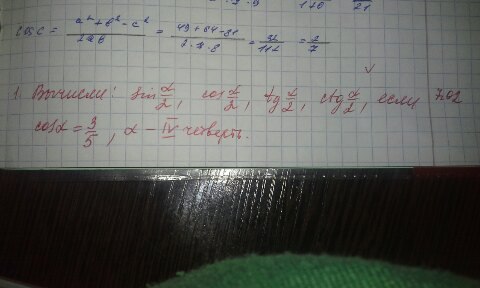 1+6 21
cos c = a²+b²-c² / 2ab = 49+64-81 / 2·7·8 = 32/112 = 2/7
1. Вычисли: sin α/2, cos α/2, tg α/2, ctg α/2, если
cosα = 3/5, α - IV четверть.